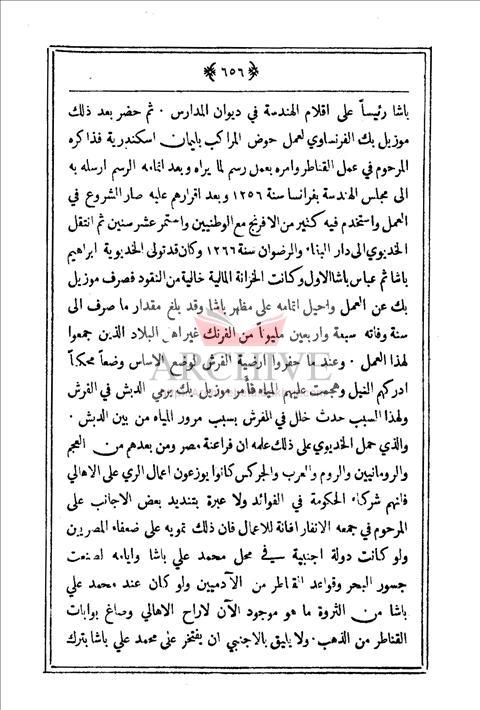 ﴿ ٦٥٦ ﴾
باشا رئيساً على اقلام الهندسة في ديوان المدارس . ثم حضر بعد ذلك
موزيل بك الفرنساوي لعمل حوض المراكب بليمان اسكندرية فذاكره
المرحوم في عمل القناطر وامره بعمل رسم لما يراه وبعد اتمامه الرسم ارسله به
الى مجلس الهندسة بفرانسا سنة ١٢٥٦ وبعد اقرارهم عليه صار الشروع في
العمل واستخدم فيه كثير من الافرنج مع الوطنيين واستمر عشر سنين ثم انتقل
الخديوي الى دار البناء والرضوان سنة ١٢٦٦ وكان قد تولى الخديوية ابراهيم
باشا ثم عباس باشا الاول وكانت الخزانة المالية خالية من النقود فصرف موزيل
بك عن العمل واحيل اتمامه على مظهر باشا وقد بلغ مقدار ما صرف الى
سنة وفاته سبعة واربعين مليوناً من الفرنك غير اهل البلاد الذين جمعوا
لهذا العمل . وعند ما حفروا ارضية الفرش لوضع الاساس وضعاً محكماً
ادركهم النيل وهجمت عليهم المياه فأمر موزيل بك برمي الدبش في الفرش
ولهذا السبب حدث خلل في المفرش بسبب مرور المياه من بين الدبش .
والذي حمل الخديوي على ذلك علمه ان فراعنة مصر ومن بعدهم من العجم
والرومانيين والروم والعرب والجركس كانوا يوزعون اعمال الري على الاهالي
فانهم شركاء الحكومة في الفوائد ولا عبرة بتنديد بعض الاجانب على
المرحوم في جمعه الانفار اعانة للاعمال فان ذلك تمويه على ضعفاء المصريين
ولو كانت دولة اجنبية في محل محمد علي باشا وايامه لصنعت
جسور البحر وقواعد القناطر من الآدميين ولو كان عند محمد علي
باشا من الثروة ما هو موجود الآن لاراح الاهالي وصاغ بوابات
القناطر من الذهب . ولا يليق بالاجنبي ان يفتخر على محمد علي باشا بترك
ARCHIVE